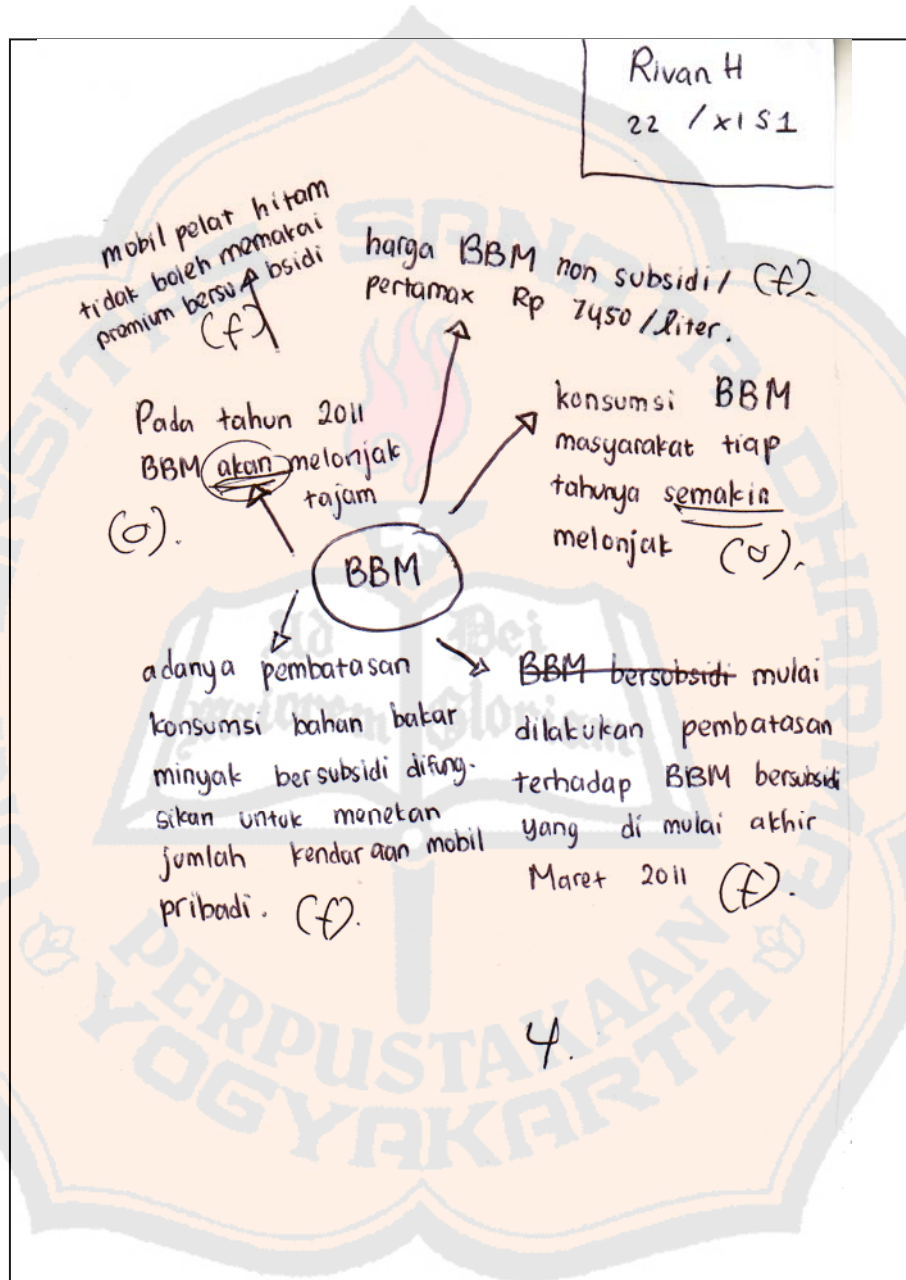 Rivan H
22 / XI S1
mobil pelat hitam
tidak boleh memakai
premium bersubsidi
(f)
harga BBM non subsidi / (f).
pertamax Rp 7450 / liter.
Pada tahun 2011
BBM akan melonjak
tajam
(o).
konsumsi BBM
masyarakat tiap
tahunya semakin
melonjak (o).
BBM
adanya pembatasan
konsumsi bahan bakar
minyak bersubsidi difung-
sikan untuk menekan
jumlah kendaraan mobil
pribadi. (f).
BBM bersubsidi mulai
dilakukan pembatasan
terhadap BBM bersubsidi
yang di mulai akhir
Maret 2011 (f).
4.
Ad Dei
maiorem Gloriam
PERPUSTAKAAN
YOGYAKARTA